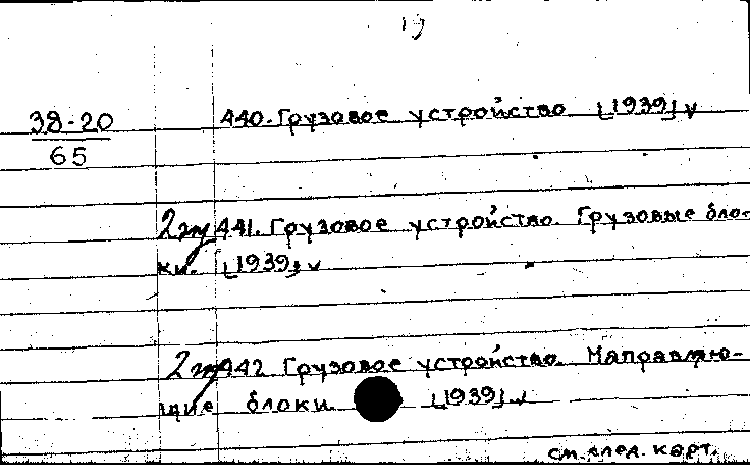 19
38-20
65
440. Грузовое устройство [1939] v
2 экз 441. Грузовое устройство. Грузовые бло-
ки. [1939] v
2 экз 442. Грузовое устройство. Направляю-
щие блоки. [1939] v
см. след. карт.